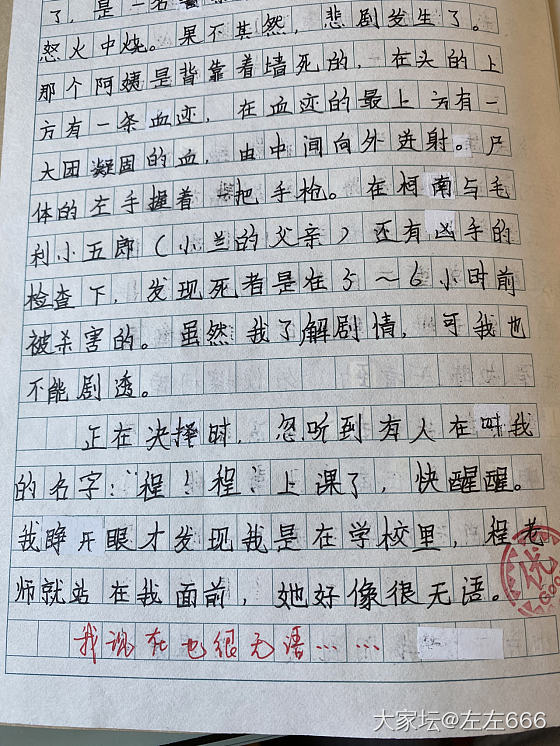 了，是一名
怒火中烧。果不其然，悲剧发生了。
那个阿姨是背靠着墙死的，在头的上
方有一条血迹，在血迹的最上方有一
大团凝固的血，由中间向外迸射。尸
体的左手握着一把手枪。在柯南与毛
利小五郎（小兰的父亲）还有凶手的
检查下，发现死者是在5～6小时前
被杀害的。虽然我了解剧情，可我也
不能剧透。
正在决择时，忽听到有人在叫我
的名字：“程！程！上课了，快醒醒。
我睁开眼才发现我是在学校里，程老
师就站在我面前，她好像很无语。
优
Good
我现在也很无语……
大家坛@左左666